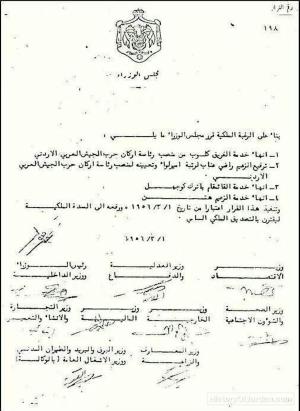 رقم القرار
١٩٨
مجلس الوزراء
بناء على الرغبة الملكية قرر مجلس الوزراء ما يلي :
١ـ انهاء خدمة الفريق كلوب من منصب رئاسة اركان حرب الجيش العربي الاردني
٢ـ ترفيع الزعيم راضي عناب لرتبة اميرلواء وتعيينه لمنصب رئاسة اركان حرب الجيش العربي
الاردني
٣ـ انهاء خدمة القائمقام باترك كوجهل
٤ـ انهاء خدمة الزعيم هتن
وتنفيذ هذا القرار اعتبارا من تاريخ ١٩٥٦/٣/١ ورفعه الى السدة الملكية
ليقترن بالتصديق الملكي السامي
١٩٥٦/٣/١
وزير وزير العدلية رئيس الوزراء
الاقتصاد والدفاع ووزير الداخلية
وزير الصحة وزير وزير وزير التجارة
والشؤون الاجتماعية الخارجية المالية والانشاء والتعمير
وزير المعارف وزير البرق والبريد والطيران المدني
والزراعة ووزير الاشغال العامة (بالوكالة)